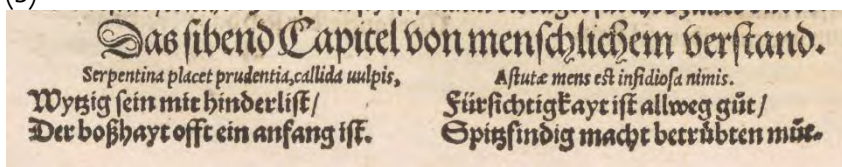 Das sibend Capitel von menschlichem verstand.
Serpentina placet prudentia, callida uulpis,
Wytzig sein mit hinderlist/
Der boßhayt offt ein anfang ist.
Astutæ mens est insidiosa nimis.
Fürsichtigkayt ist allweg güt/
Spitzfindig macht betrübten müt.